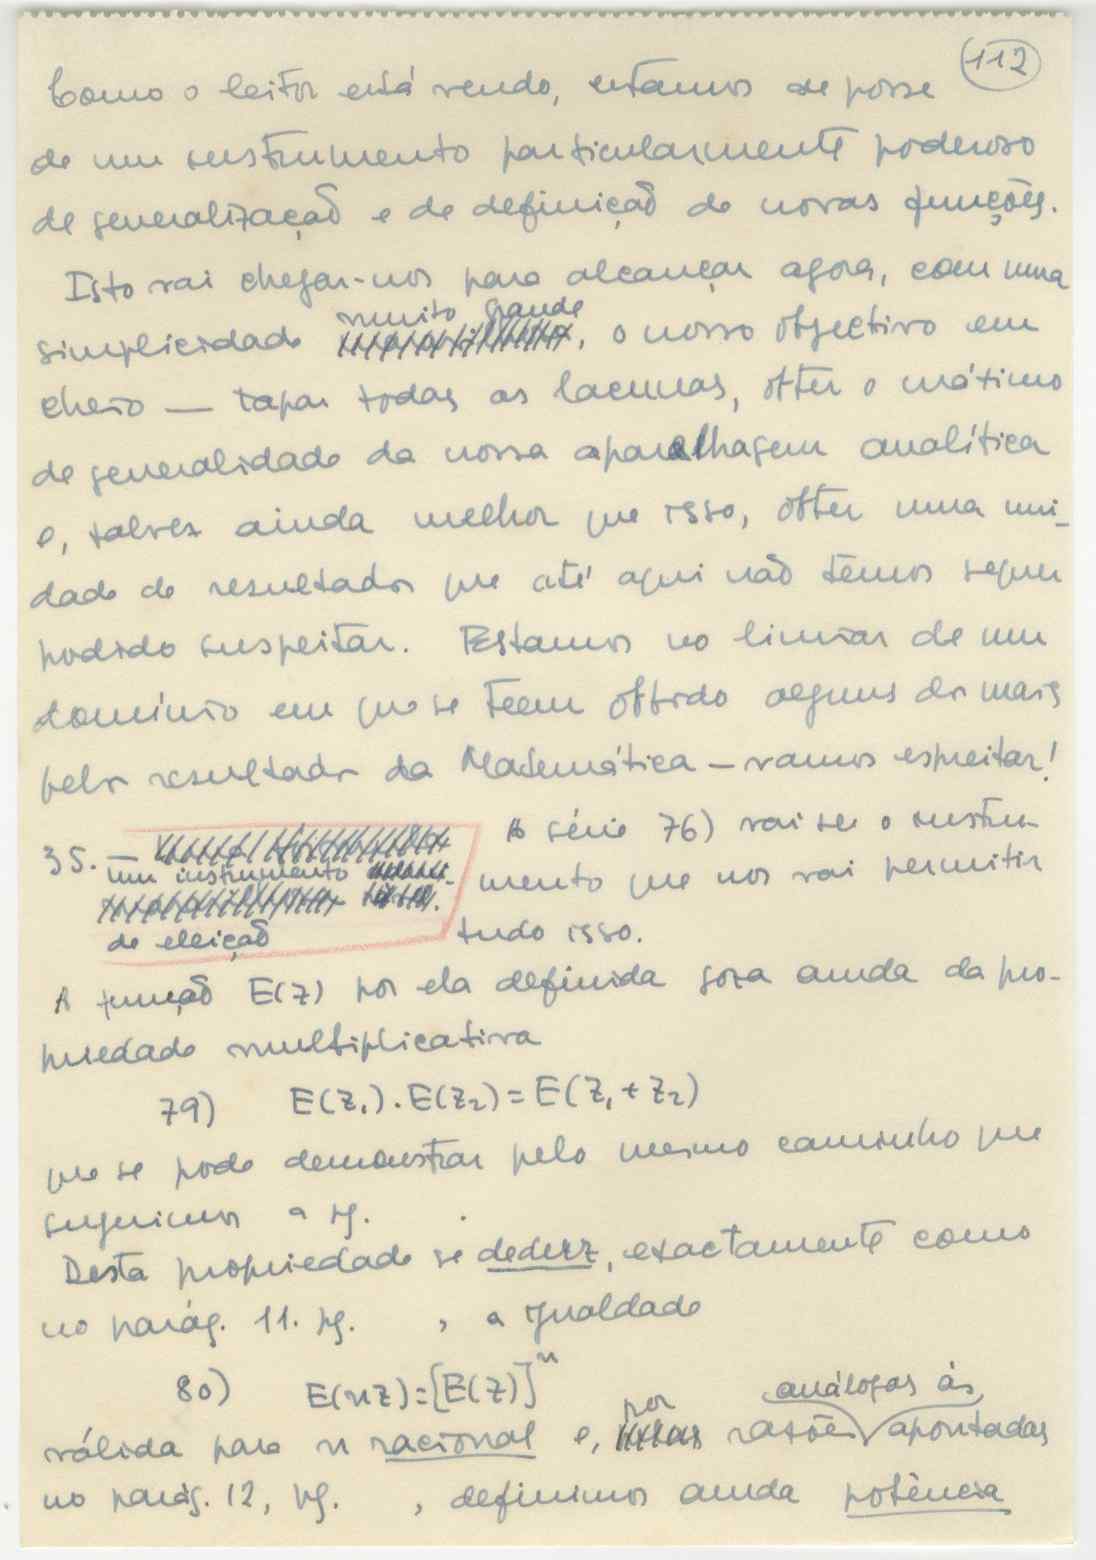 112
Como o leitor está vendo, estamos de posse
de um instrumento particularmente poderoso
de generalização e de definição de novas funções.
Isto vai chegar-nos para alcançar agora, com uma
muito grande
simplicidade , o nosso objectivo em
cheio — tapar todas as lacunas, obter o máximo
de generalidade da nossa aparelhagem analítica
e, talvez ainda melhor que isso, obter uma uni-
dade de resultados que até aqui não temos sequer
podido suspeitar. Estamos no limiar de um
domínio em que se teem obtido alguns dos mais
belos resultados da Matemática — vamos espreitar!
35. —
um instrumento
de eleição
A série 76) vai ser o instru-
mento que nos vai permitir
tudo isso.
A função E(z) por ela definida goza ainda da pro-
priedade multiplicativa
79) E(z₁).E(z₂)=E(z₁+z₂)
que se pode demonstrar pelo mesmo caminho que
seguimos a pg.
Desta propriedade se deduz, exactamente como
no parág. 11. pg. , a igualdade
80) E(nz)=[E(z)]ⁿ
por análogas às
válida para n racional e, razões apontadas
no parág. 12, pg. , definimos ainda potência